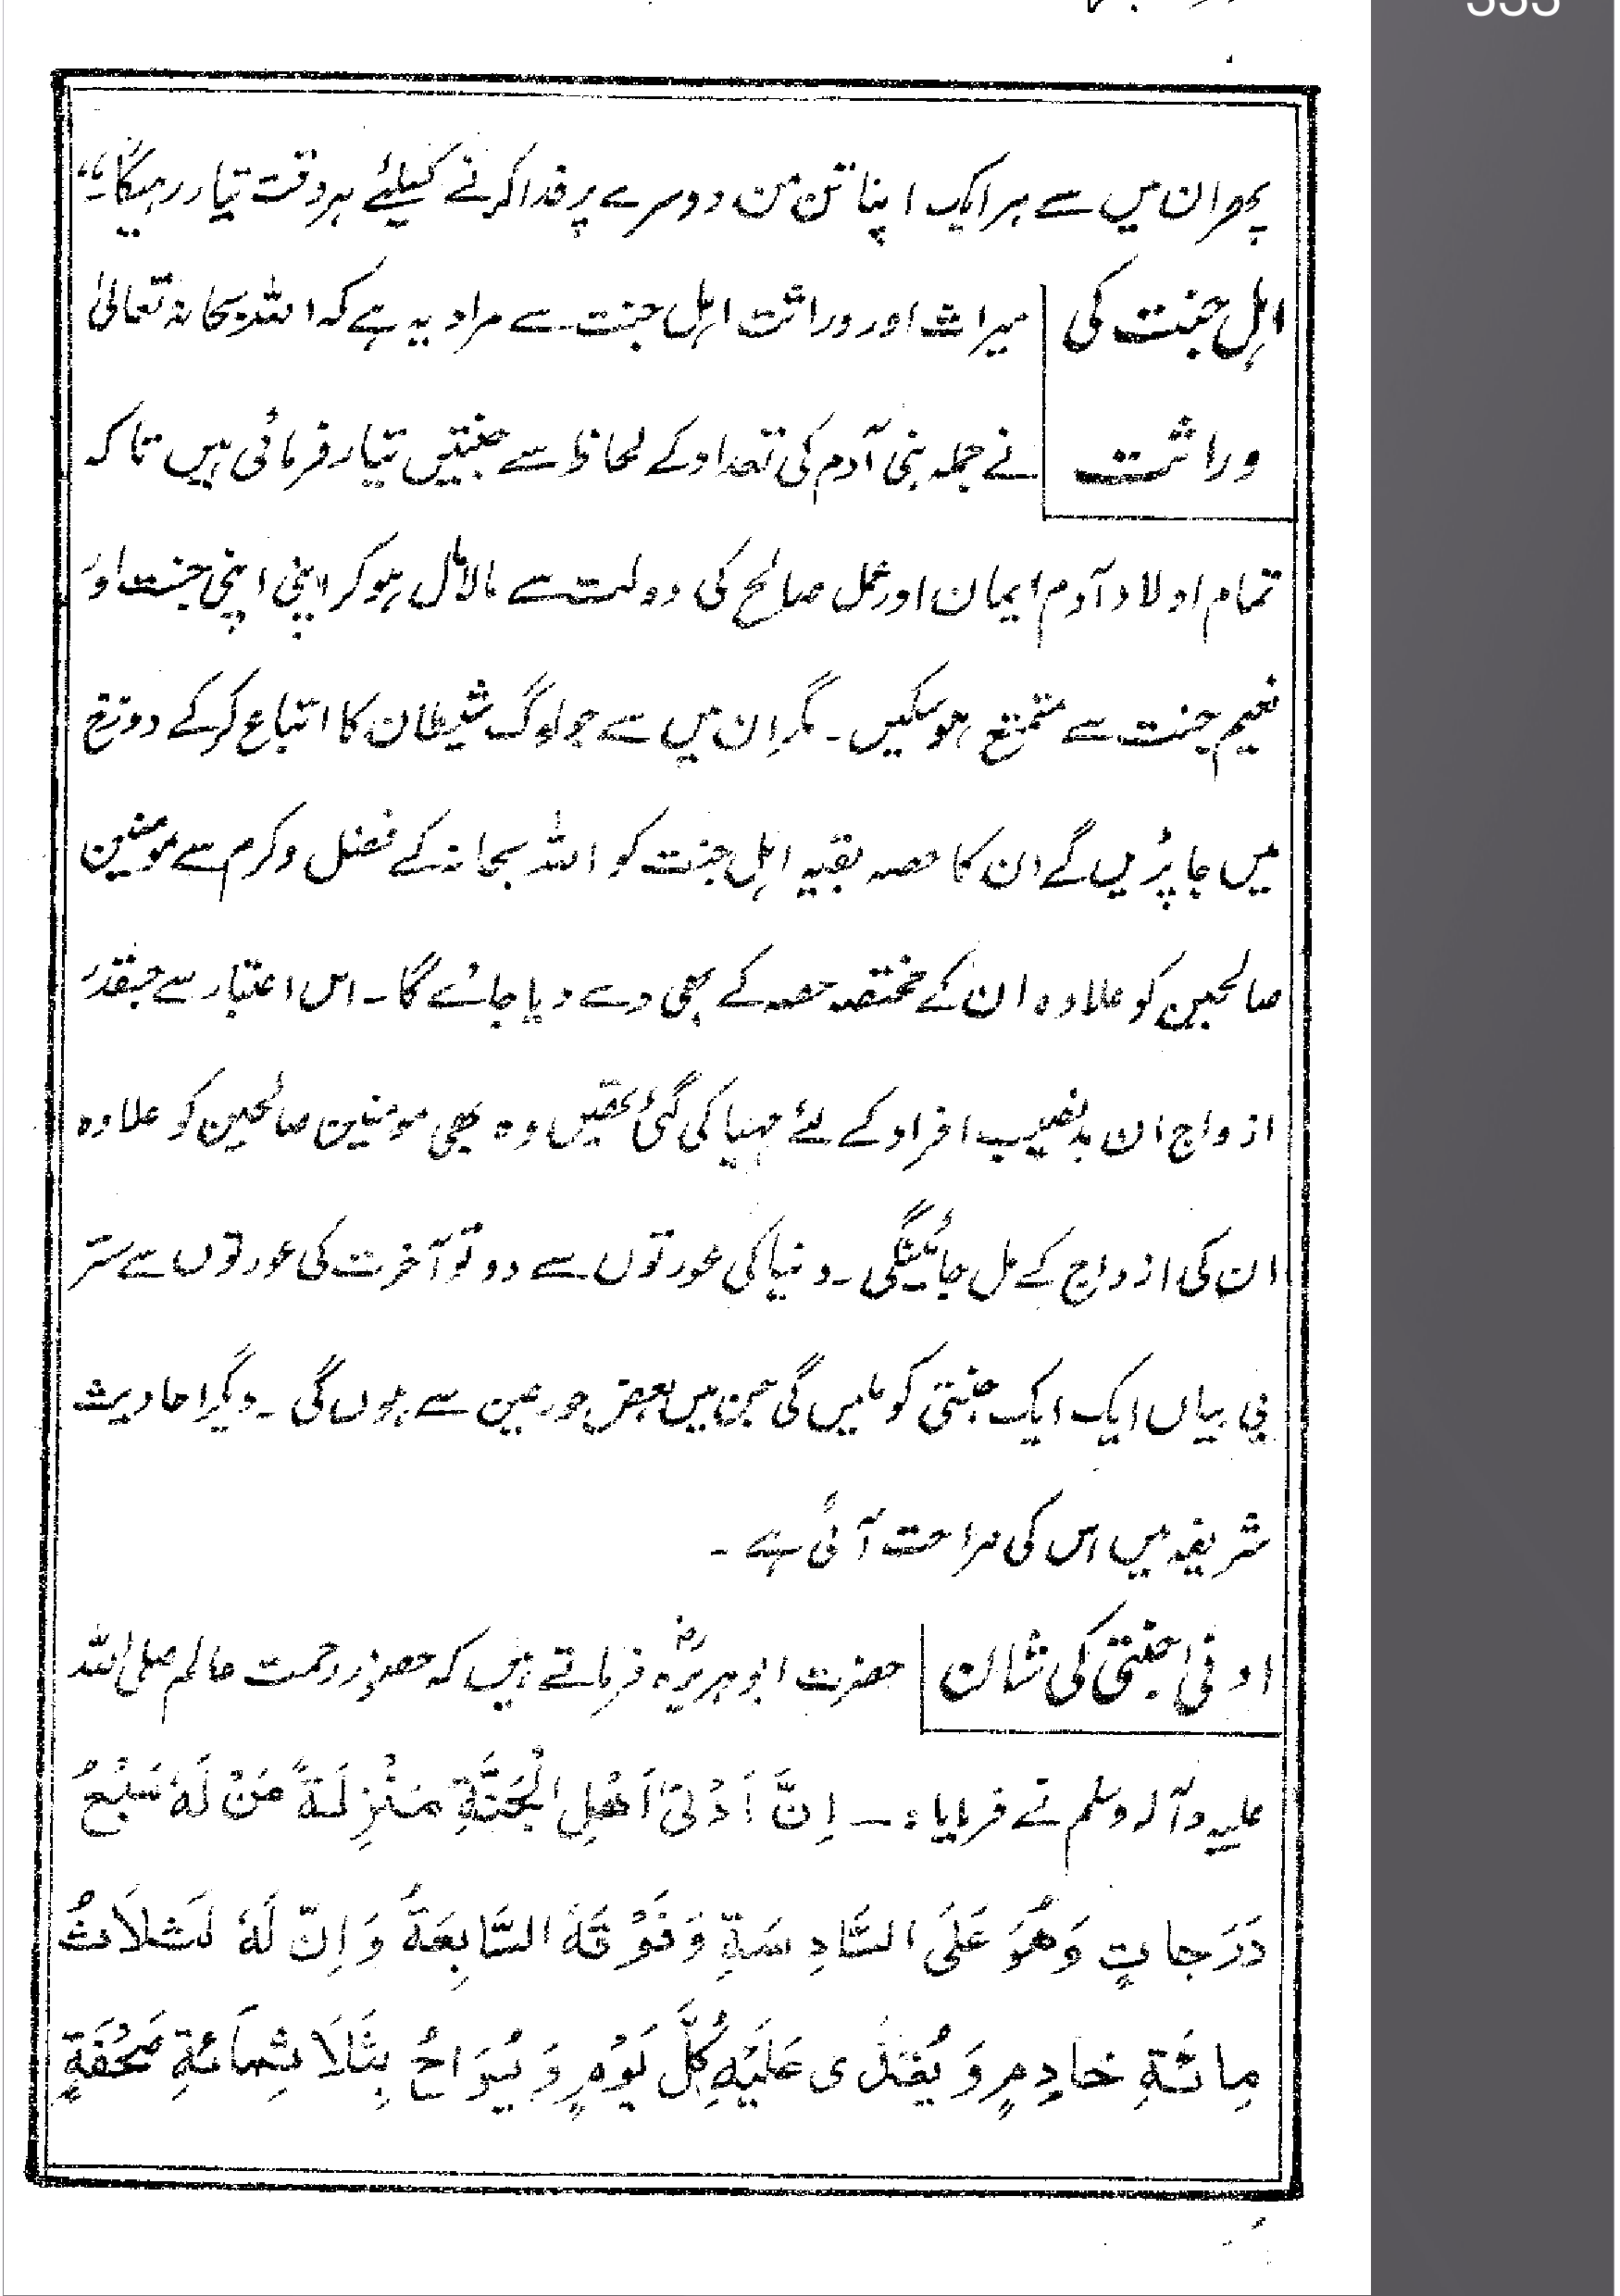 پھر ان میں سے ہر ایک اپنا تن من دوسرے پر فدا کرنے کیلئے ہر وقت تیار رہیگا۔"
اہل جنت کی میراث اور وراثت اہل جنت سے مراد یہ ہے کہ اللہ سبحانہ تعالیٰ
وراثت نے جملہ بنی آدم کی تعداد کے لحاظ سے جنتیں تیار فرمائی ہیں تا کہ
تمام اولاد آدم ایمان اور عمل صالح کی دولت سے مالامال ہو کر اپنی اپنی جنت اور
نعیم جنت سے متمتع ہو سکیں۔ مگر ان میں سے جو لوگ شیطان کا اتباع کر کے دوزخ
میں جا پڑیں گے ان کا حصہ بقیہ اہل جنت کو اللہ سبحانہ کے فضل و کرم سے مومنین
صالحین کو علاوہ ان کے مختصہ حصہ کے بھی دے دیا جائے گا۔ اس اعتبار سے جسقدر
ازواج ان بدنصیب افراد کے لئے مہیا کی گئی تھیں وہ بھی مومنین صالحین کو علاوہ
ان کی ازواج کے مل جائینگی۔ دنیا کی عورتوں سے دو تو آخرت کی عورتوں سے ستر
بی بیاں ایک ایک جنتی کو ملیں گی جن میں بعض حور عین سے ہوں گی۔ دیگر احادیث
شریفہ میں اس کی صراحت آئی ہے۔
ادنیٰ جنتی کی شان حضرت ابو ہریرہؓ فرماتے ہیں کہ حضور رحمت عالم صلی اللہ
علیہ وآلہ وسلم نے فرمایا:۔ اِنَّ اَدْنیٰ اَهْلِ الْجَنَّةِ مَنْزِلَةً مَنْ لَهٗ سَبْعُ
دَرَجاتٍ وَهُوَ عَلَی السَّادِسَةِ وَفَوْقَهُ السَّابِعَةُ وَاِنَّ لَهٗ لَثَلَاثُ
مِائَةِ خَادِمٍ وَيُغْدٰى عَلَيْهِ كُلَّ يَوْمٍ وَيُرَاحُ بِثَلَاثِمَائَةِ صَحْفَةٍ